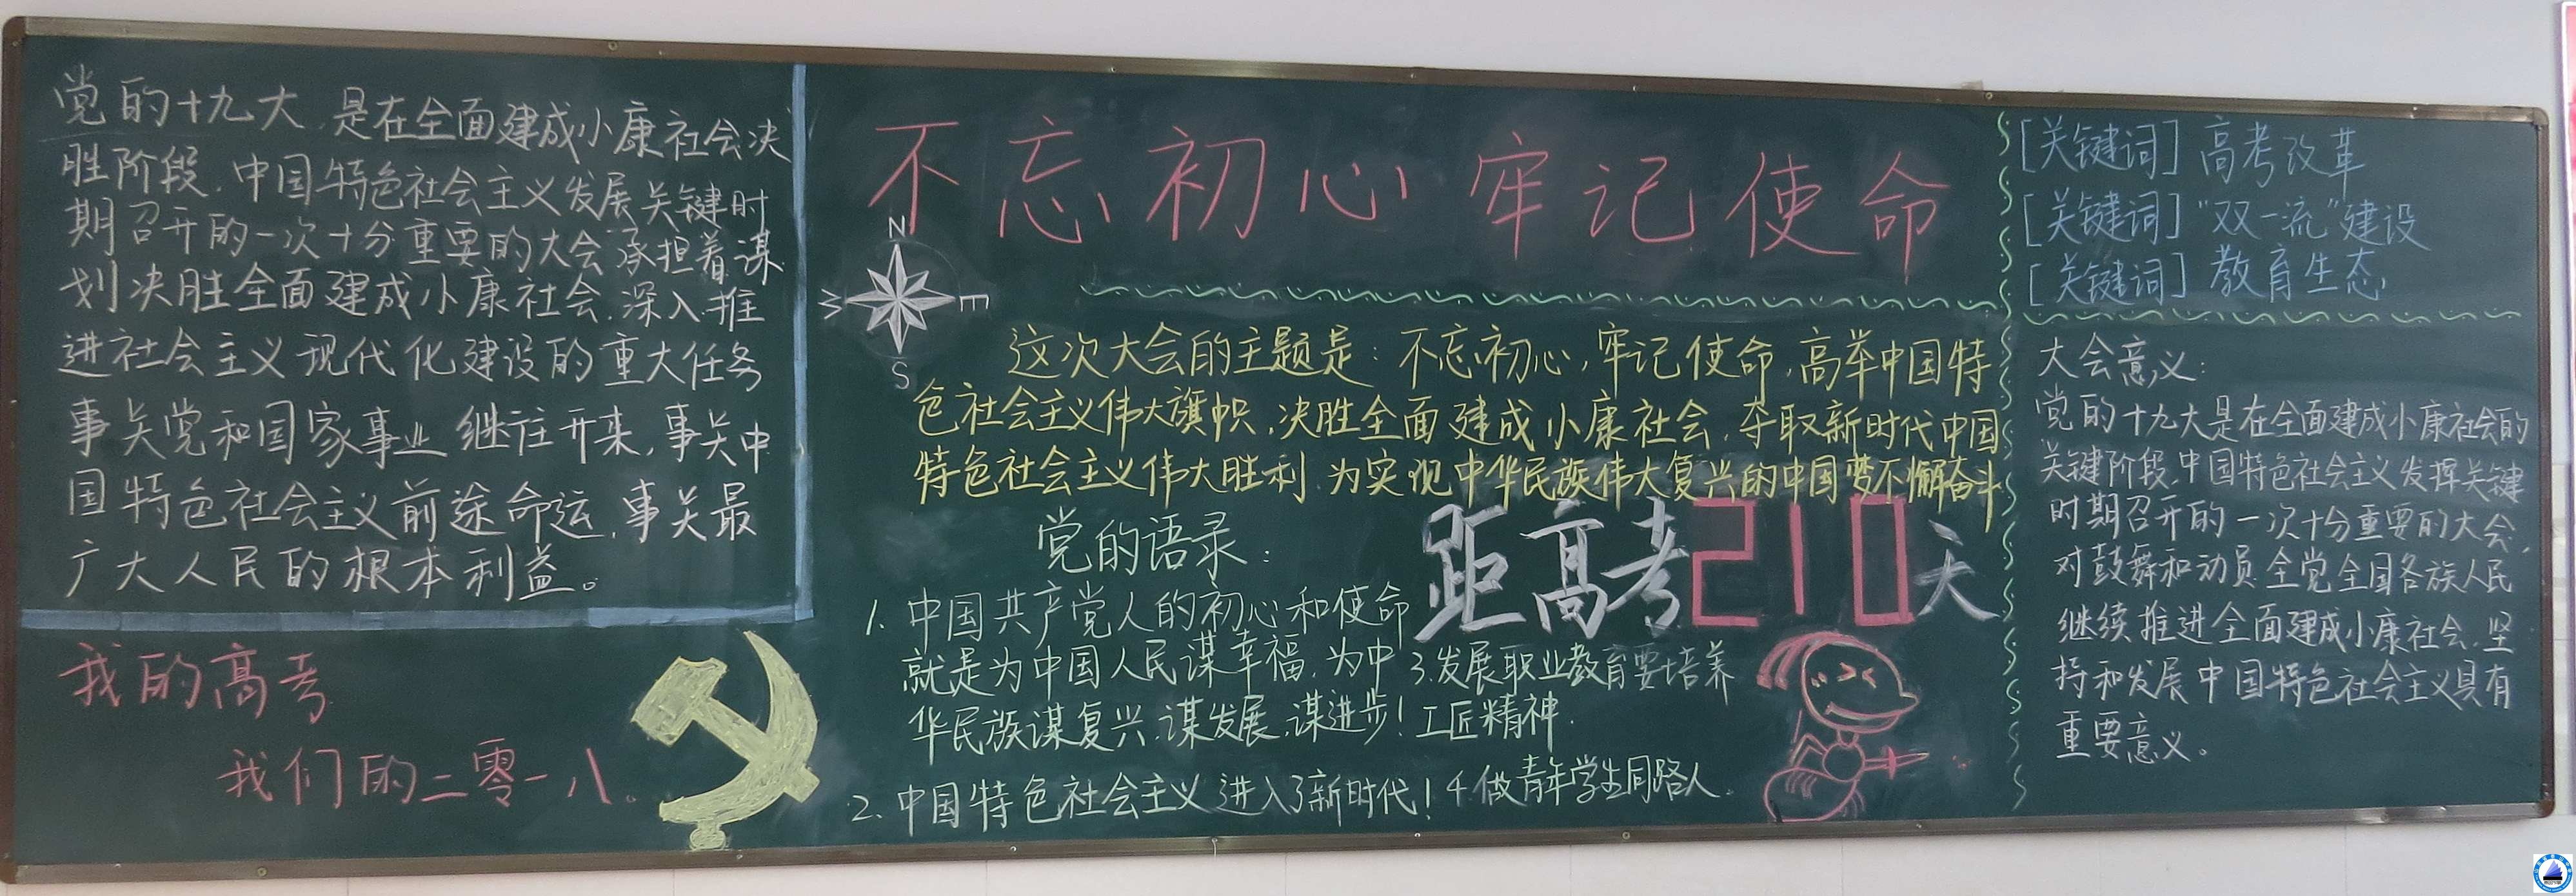 党的十九大,是在全面建成小康社会决
胜阶段,中国特色社会主义发展关键时
期召开的一次十分重要的大会,承担着谋
划决胜全面建成小康社会,深入推
进社会主义现代化建设的重大任务
事关党和国家事业继往开来,事关中
国特色社会主义前途命运,事关最
广大人民的根本利益。
我的高考
我们的二零一八。
不忘初心牢记使命
N
W E
S
这次大会的主题是:不忘初心,牢记使命,高举中国特
色社会主义伟大旗帜,决胜全面建成小康社会,夺取新时代中国
特色社会主义伟大胜利,为实现中华民族伟大复兴的中国梦不懈奋斗
距高考210天
党的语录:
1.中国共产党人的初心和使命
就是为中国人民谋幸福,为中
华民族谋复兴,谋发展,谋进步!
2.中国特色社会主义进入了新时代!
3.发展职业教育要培养
工匠精神.
4.做青年学生同路人.
[关键词]高考改革
[关键词]“双一流”建设
[关键词]教育生态
大会意义:
党的十九大是在全面建成小康社会的
关键阶段,中国特色社会主义发挥关键
时期召开的一次十分重要的大会,
对鼓舞和动员全党全国各族人民
继续推进全面建成小康社会,坚
持和发展中国特色社会主义具有
重要意义。